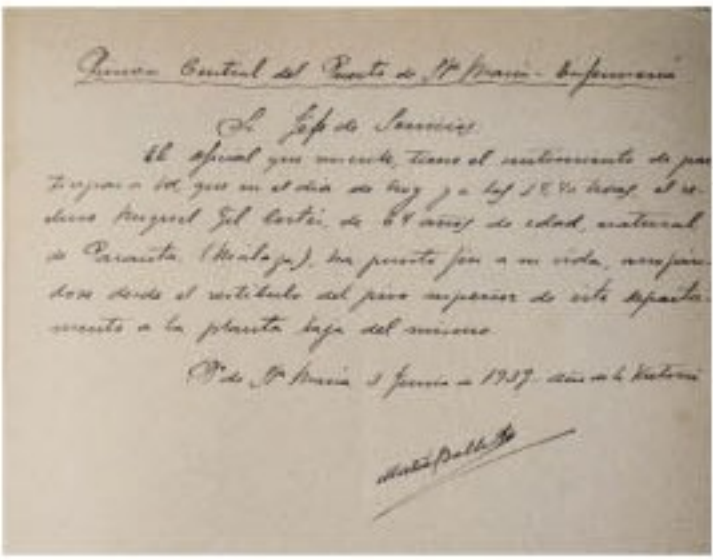 Prision Central del Puerto de Sta Maria - Enfermeria
Sr. Jefe de Servicios
El oficial que suscribe, tiene el sentimiento de par-
ticipar a Vd. que en el dia de hoy y a las horas, el re-
cluso Miguel Gil Cortés, de 64 años de edad, natural
de Parauta (Málaga), ha puesto fin a su vida, arroján-
dose desde el vestibulo del piso superior de este departa-
mento a la planta baja del mismo
Pto de Sta Maria 3 Junio de 1939 - Año de la Victoria